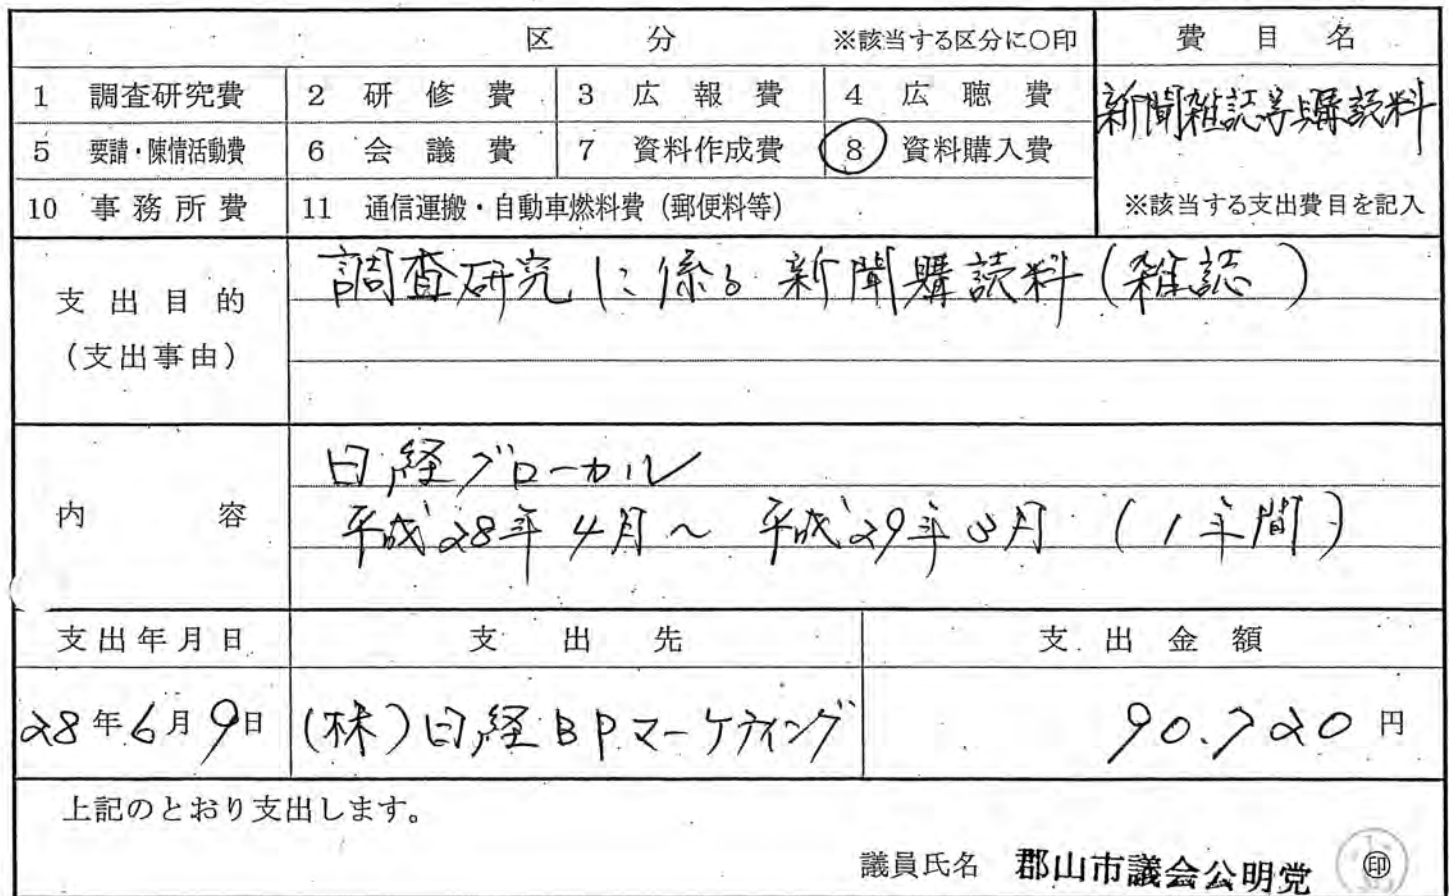 区 分 ※該当する区分に○印 費 目 名
1 調査研究費 2 研 修 費 3 広 報 費 4 広 聴 費
新聞雑誌等購読料
5 要請・陳情活動費 6 会 議 費 7 資料作成費 8 資料購入費
10 事務所費 11 通信運搬・自動車燃料費（郵便料等） ※該当する支出費目を記入
支出目的
（支出事由）
調査研究に係る新聞購読料（雑誌）
内 容
日経グローカル
平成28年4月～平成29年3月（1年間）
支出年月日 支 出 先 支 出 金 額
28年6月9日 （株）日経BPマーケティング 90.720円
上記のとおり支出します。
議員氏名 郡山市議会公明党 ㊞